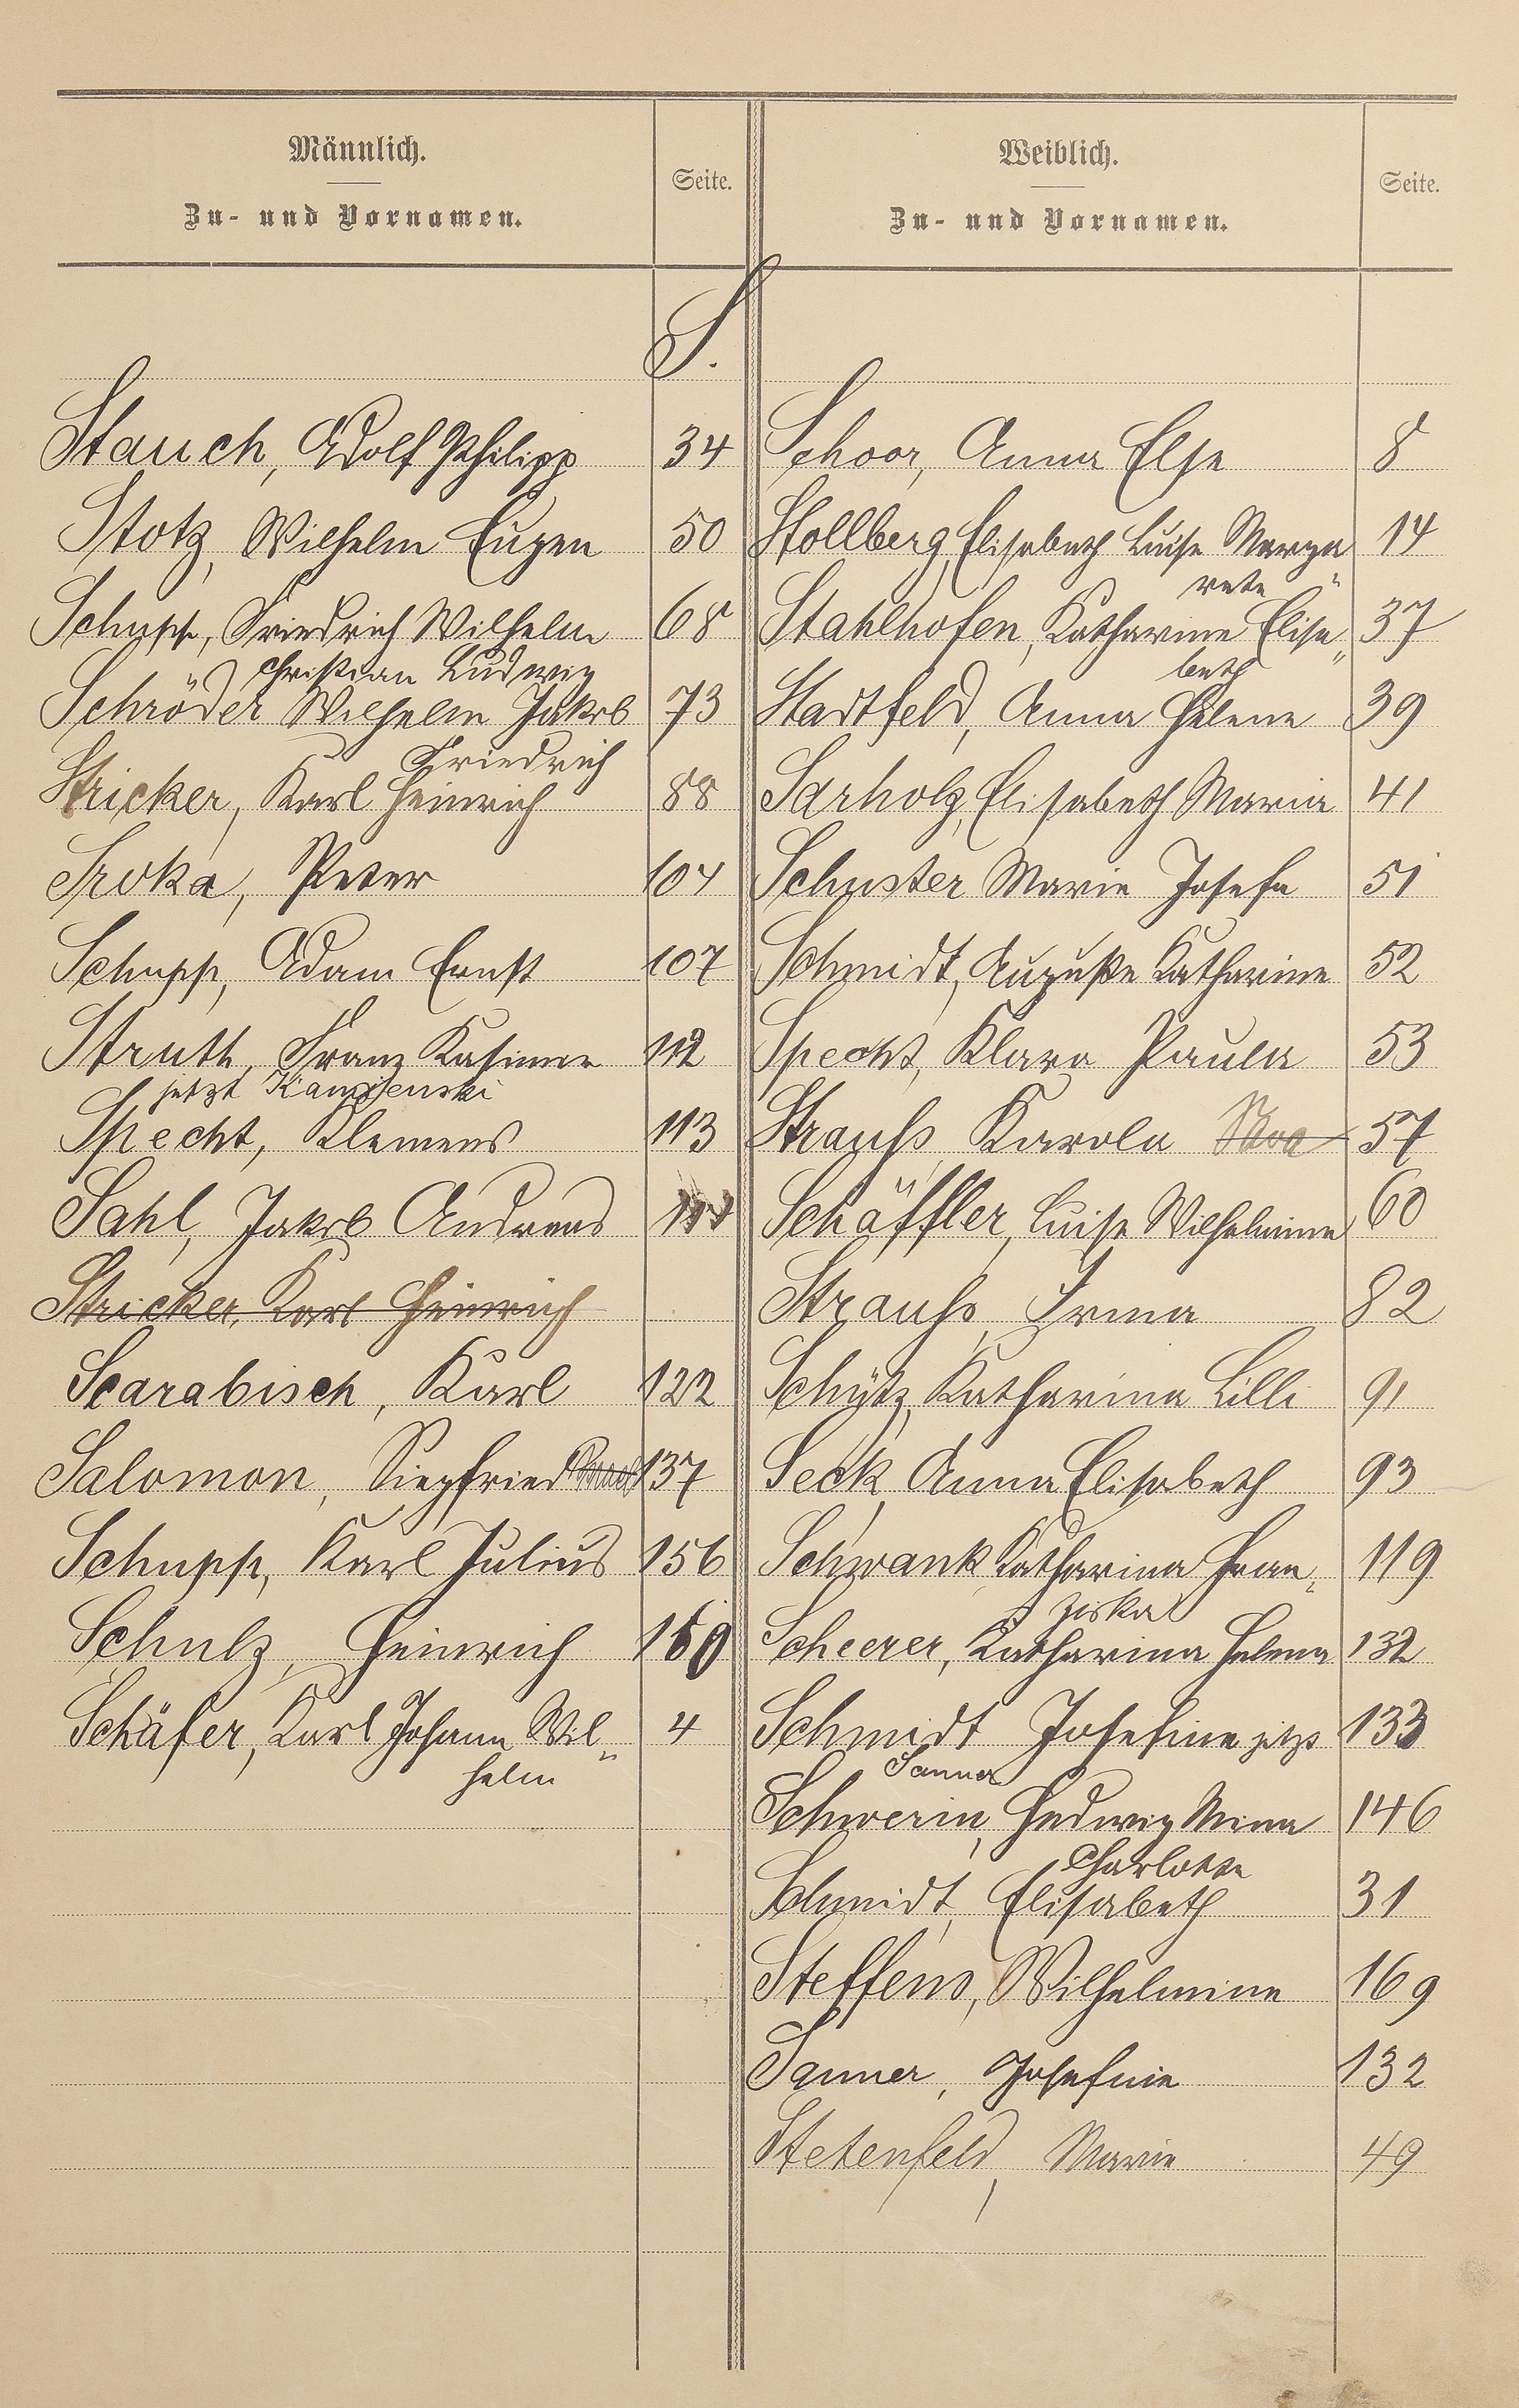 Männlich.
Zu- und Vornamen.
Seite.
Weiblich.
Zu- und Vornamen.
Seite.
S.
Stauch, Adolf Philipp 34
Stotz, Wilhelm Eugen 50
Schupp, Friedrich Wilhelm 68
Christian Ludwig
Schröder Wilhelm Jakob 73
Friedrich
Stricker, Karl Heinrich 88
Sroka, Peter 104
Schupp, Adam Ernst 107
Struth, Franz Kasimir 112
jetzt
Specht, Klemens 113
Sahl, Jakob Andreas
Stricker, Karl Heinrich
Scarabisch, Karl 122
Salomon, Siegfried Israel 137
Schupp, Karl Julius 156
Schulz, Heinrich
Schäfer, Karl Johann Wil„ 4
helm
Schoor, Anna Else 8
Stollberg, Elisabeth Luise Marga 14
rete „
Stahlhofen, Katharine Elisa„ 37
beth
Stadtfeld, Anna Helene 39
Sarholz, Elisabeth Maria 41
Schuster Marie Josefa 51
Schmidt, Auguste Katharine 52
Specht, Klara Paula 53
Strauß Karola 57
Schäffler, Luise Wilhelmine 60
Strauß, Irma 82
Schütz, Katharina Lilli 91
Seck, Anna Elisabeth 93
Schwank, Katharina Fran„ 119
ziska
Scheerer, Katharina Helena 132
Schmidt Josefine jetzt 133
Sanner
Schwerin, Hedwig Mina 146
Charlotte
Schmidt, Elisabeth 31
Steffens, Wilhelmine 169
Sanner, Josefine 132
Stetenfeld, Marie 49